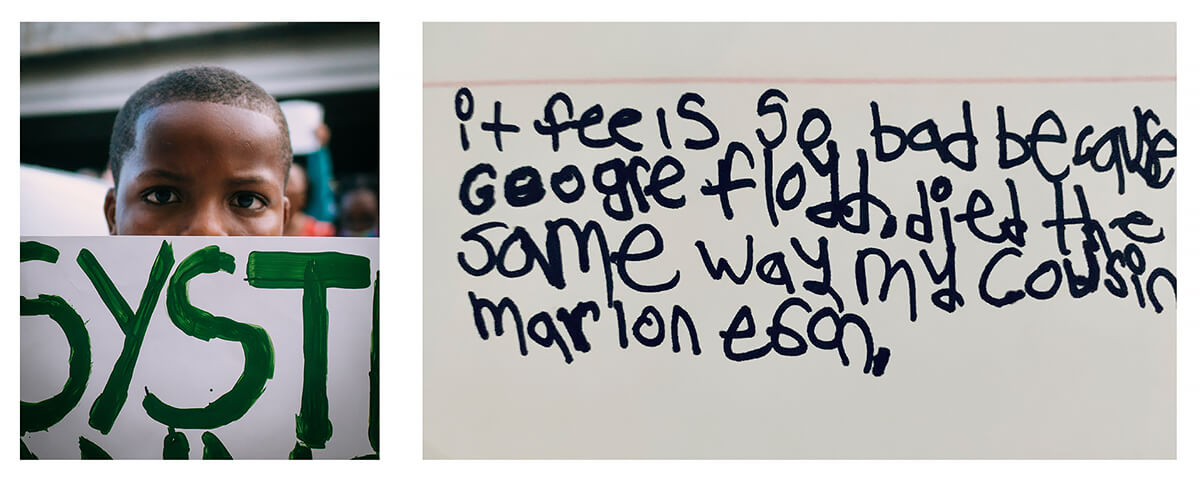 SYST
it feels so bad because
Googre floyd, died the
same way my cousin
marlon eson,